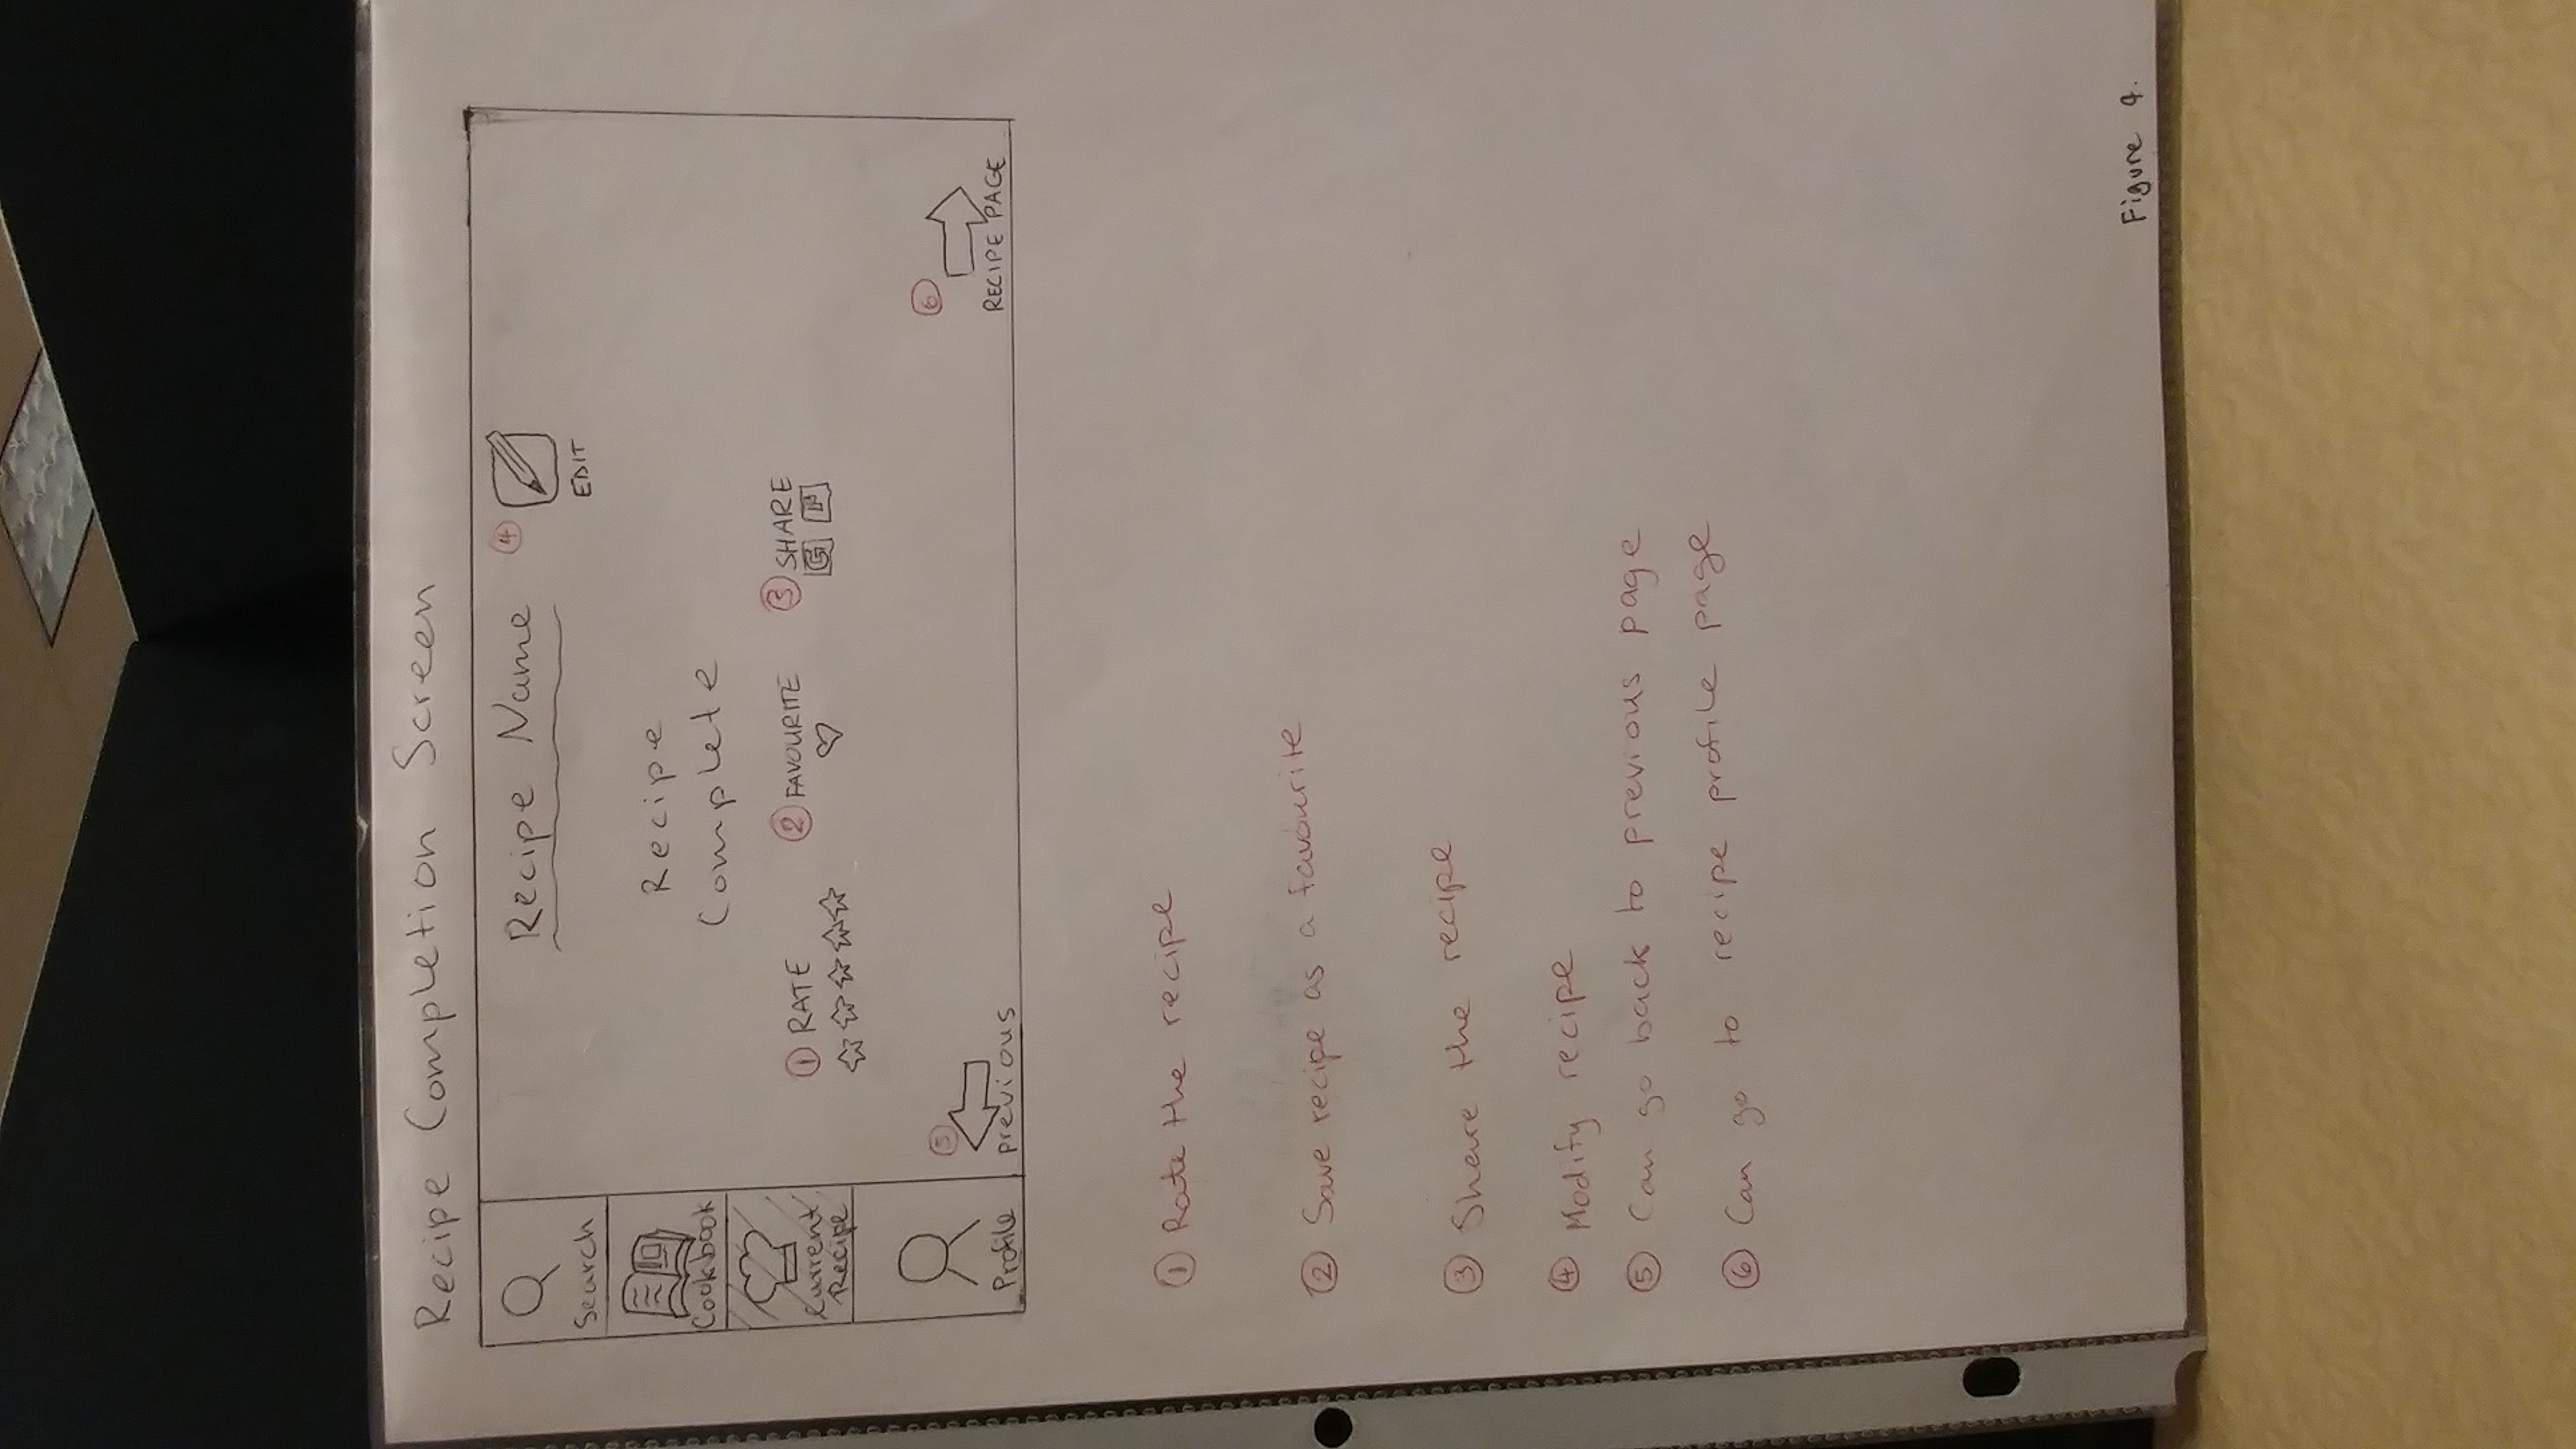 Recipe Completion Screen
Search
Cookbook
Current
Recipe
Profile
Recipe Name
④
EDIT
Recipe
Complete
① RATE
② FAVOURITE
③ SHARE
G F
⑤
previous
⑥
RECIPE PAGE
① Rate the recipe
② Save recipe as a favourite
③ Share the recipe
④ Modify recipe
⑤ Can go back to previous page
⑥ Can go to recipe profile page
Figure 9.